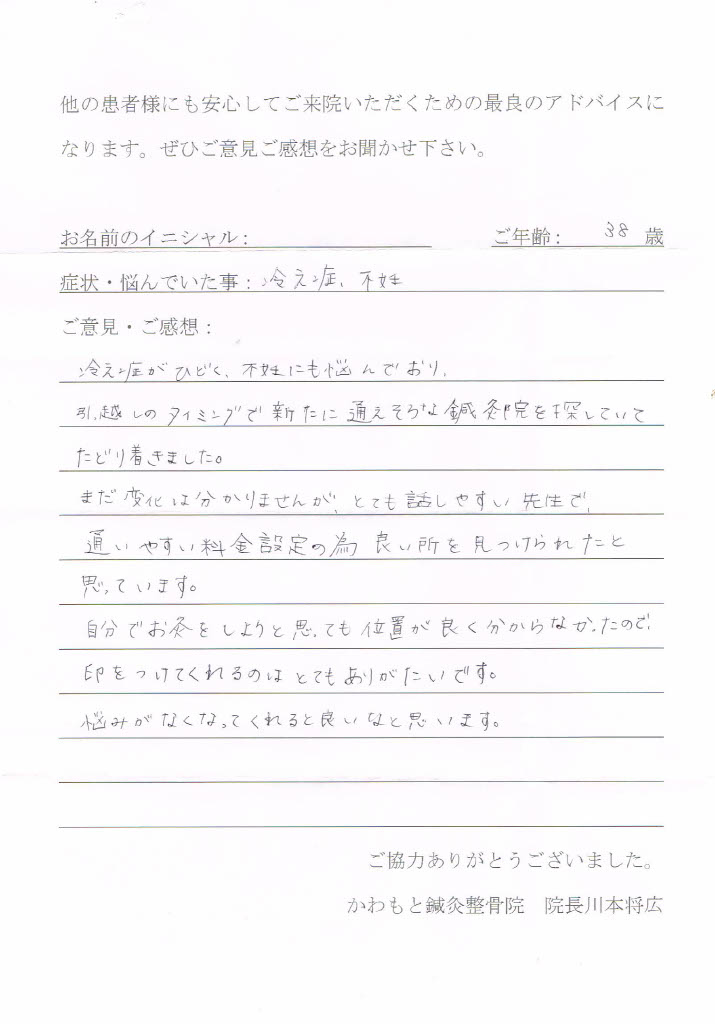 他の患者様にも安心してご来院いただくための最良のアドバイスに
なります。ぜひご意見ご感想をお聞かせ下さい。
お名前のイニシャル： ご年齢： 38 歳
症状・悩んでいた事：冷え症、不妊
ご意見・ご感想：
冷え症がひどく、不妊にも悩んでおり、
引越しのタイミングで新たに通えそうな鍼灸院を探していて
たどり着きました。
まだ変化は分かりませんが、とても話しやすい先生で、
通いやすい料金設定の為 良い所を見つけられたと
思っています。
自分でお灸をしようと思っても位置が良く分からなかったので、
印をつけてくれるのはとてもありがたいです。
悩みがなくなってくれると良いなと思います。
ご協力ありがとうございました。
かわもと鍼灸整骨院　院長川本将広